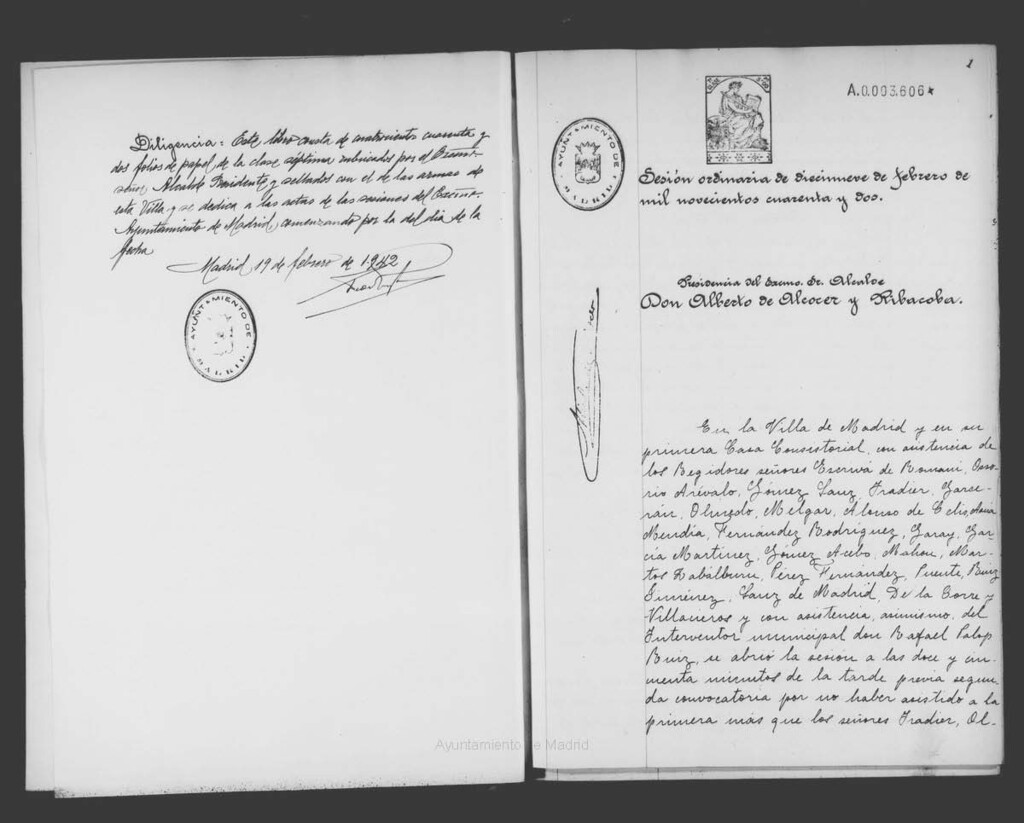 Diligencia: Este libro consta de cuatrocientos cuarenta y
dos folios de papel de la clase séptima rubricados por el Excmo.
señor Alcalde Presidente y sellados con el de las armas de
esta Villa y se dedica a las actas de las sesiones del Excmo.
Ayuntamiento de Madrid, comenzando por la del día de la
fecha
Madrid 19 de febrero de 1.942
AYUNTAMIENTO DE
MADRID
1
A.0.003.606*
AYUNTAMIENTO DE
MADRID
Sesión ordinaria de diecinueve de febrero de
mil novecientos cuarenta y dos.
Presidencia del Excmo. Sr. Alcalde
Don Alberto de Alcocer y Ribacoba.
En la Villa de Madrid y en su
primera Casa Consistorial, con asistencia de
los Regidores señores Escrivá de Romaní, Oso-
rio Arévalo, Gómez Sanz, Tradier, Garce-
rán, Olmedo, Melgar, Alonso de Celis,
Mendía, Fernández Rodríguez, Garay, Gar-
cía Martínez, Gómez Acebo, Mahou, Mar-
tos Zabálburu, Pérez Fernández, Puente, Ruiz
Giménez, Sanz de Madrid, De la Torre y
Villacieros y con asistencia, asimismo, del
Interventor municipal don Rafael Salop
Ruiz, se abrió la sesión a las doce y cin-
cuenta minutos de la tarde previa segun-
da convocatoria por no haber asistido a la
primera más que los señores Tradier, Ol-
Ayuntamiento de Madrid